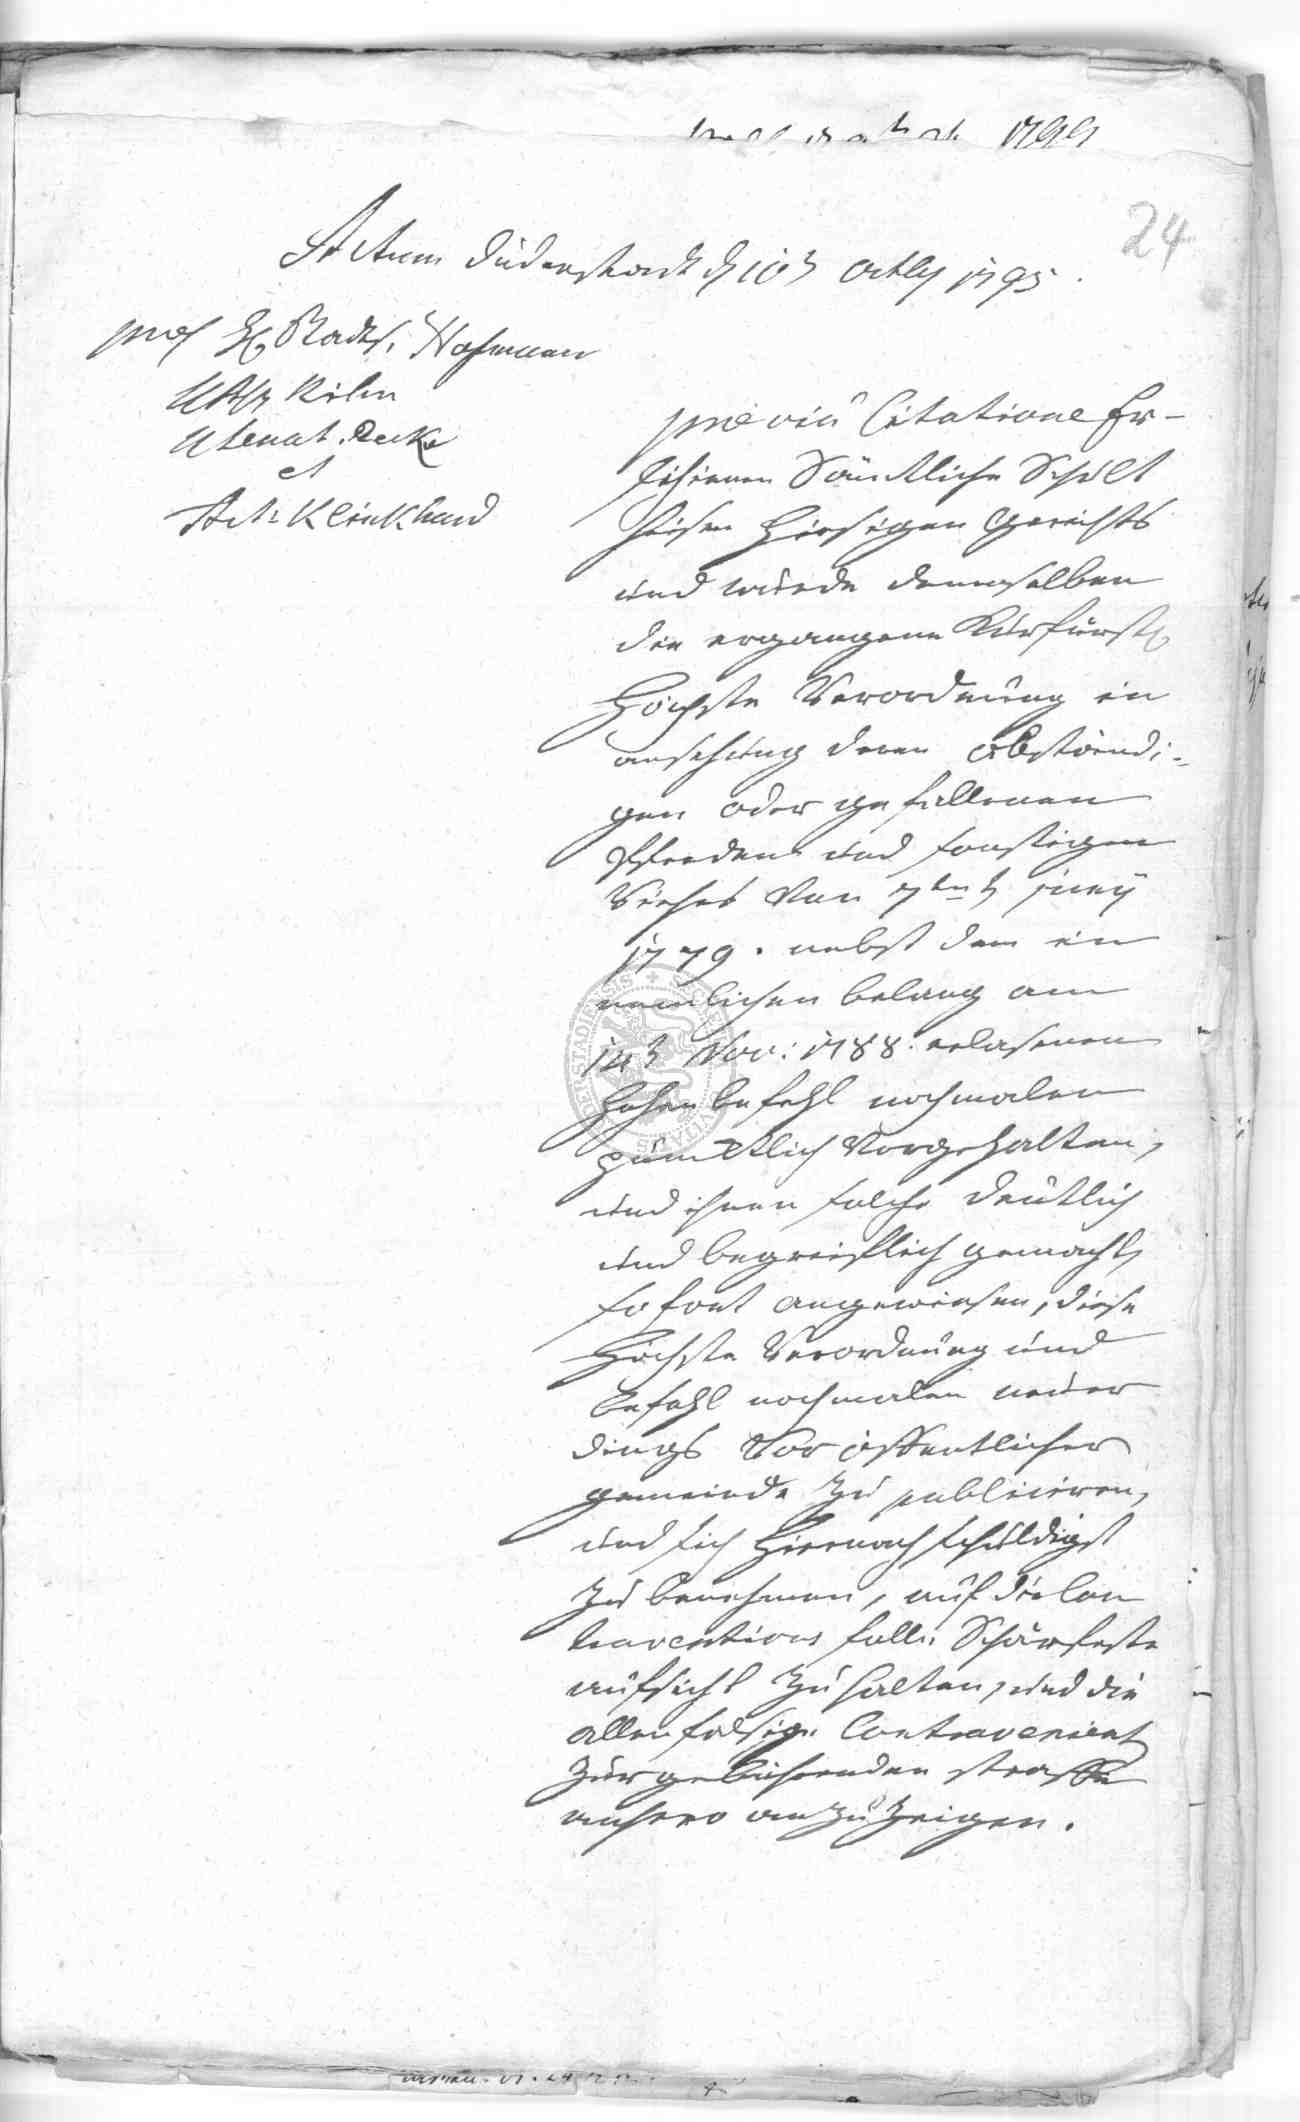 1799
24
Actum Duderstadt d 16t octbr 1795.
Hofmann
et
Act: Klinkhard
prævia Citatione Er-
schienen Sämtliche Schult
heisen hiesigen Gerichts
und wurde denenselben
die ergangene Kurfürstl
Höchste Verordnung in
ansehung deren abständi-
gen oder gefallenen
Pferden und sonstigen
Viehes Von 7ten juny
1779. nebst dem in
nemlichen belang am
14t Nov: 1788. erlasenen
Hohen befehl nochmalen
pünktlich Vorgehalten,
und ihnen solche deutlich
und begreiflich gemacht,
sofort angewiesen, diese
Höchste Verordnung und
befehl nochmalen neuer
dings Vor öffentlicher
gemeinde zu publiciren,
und sich hiernach schuldigst
zu benehmen, auf die Con
traventions fälle Schärfeste
aufsicht zu halten, und die
allenfalsige Contravenient
zur gebührenden straffe
anhero anzuzeigen.